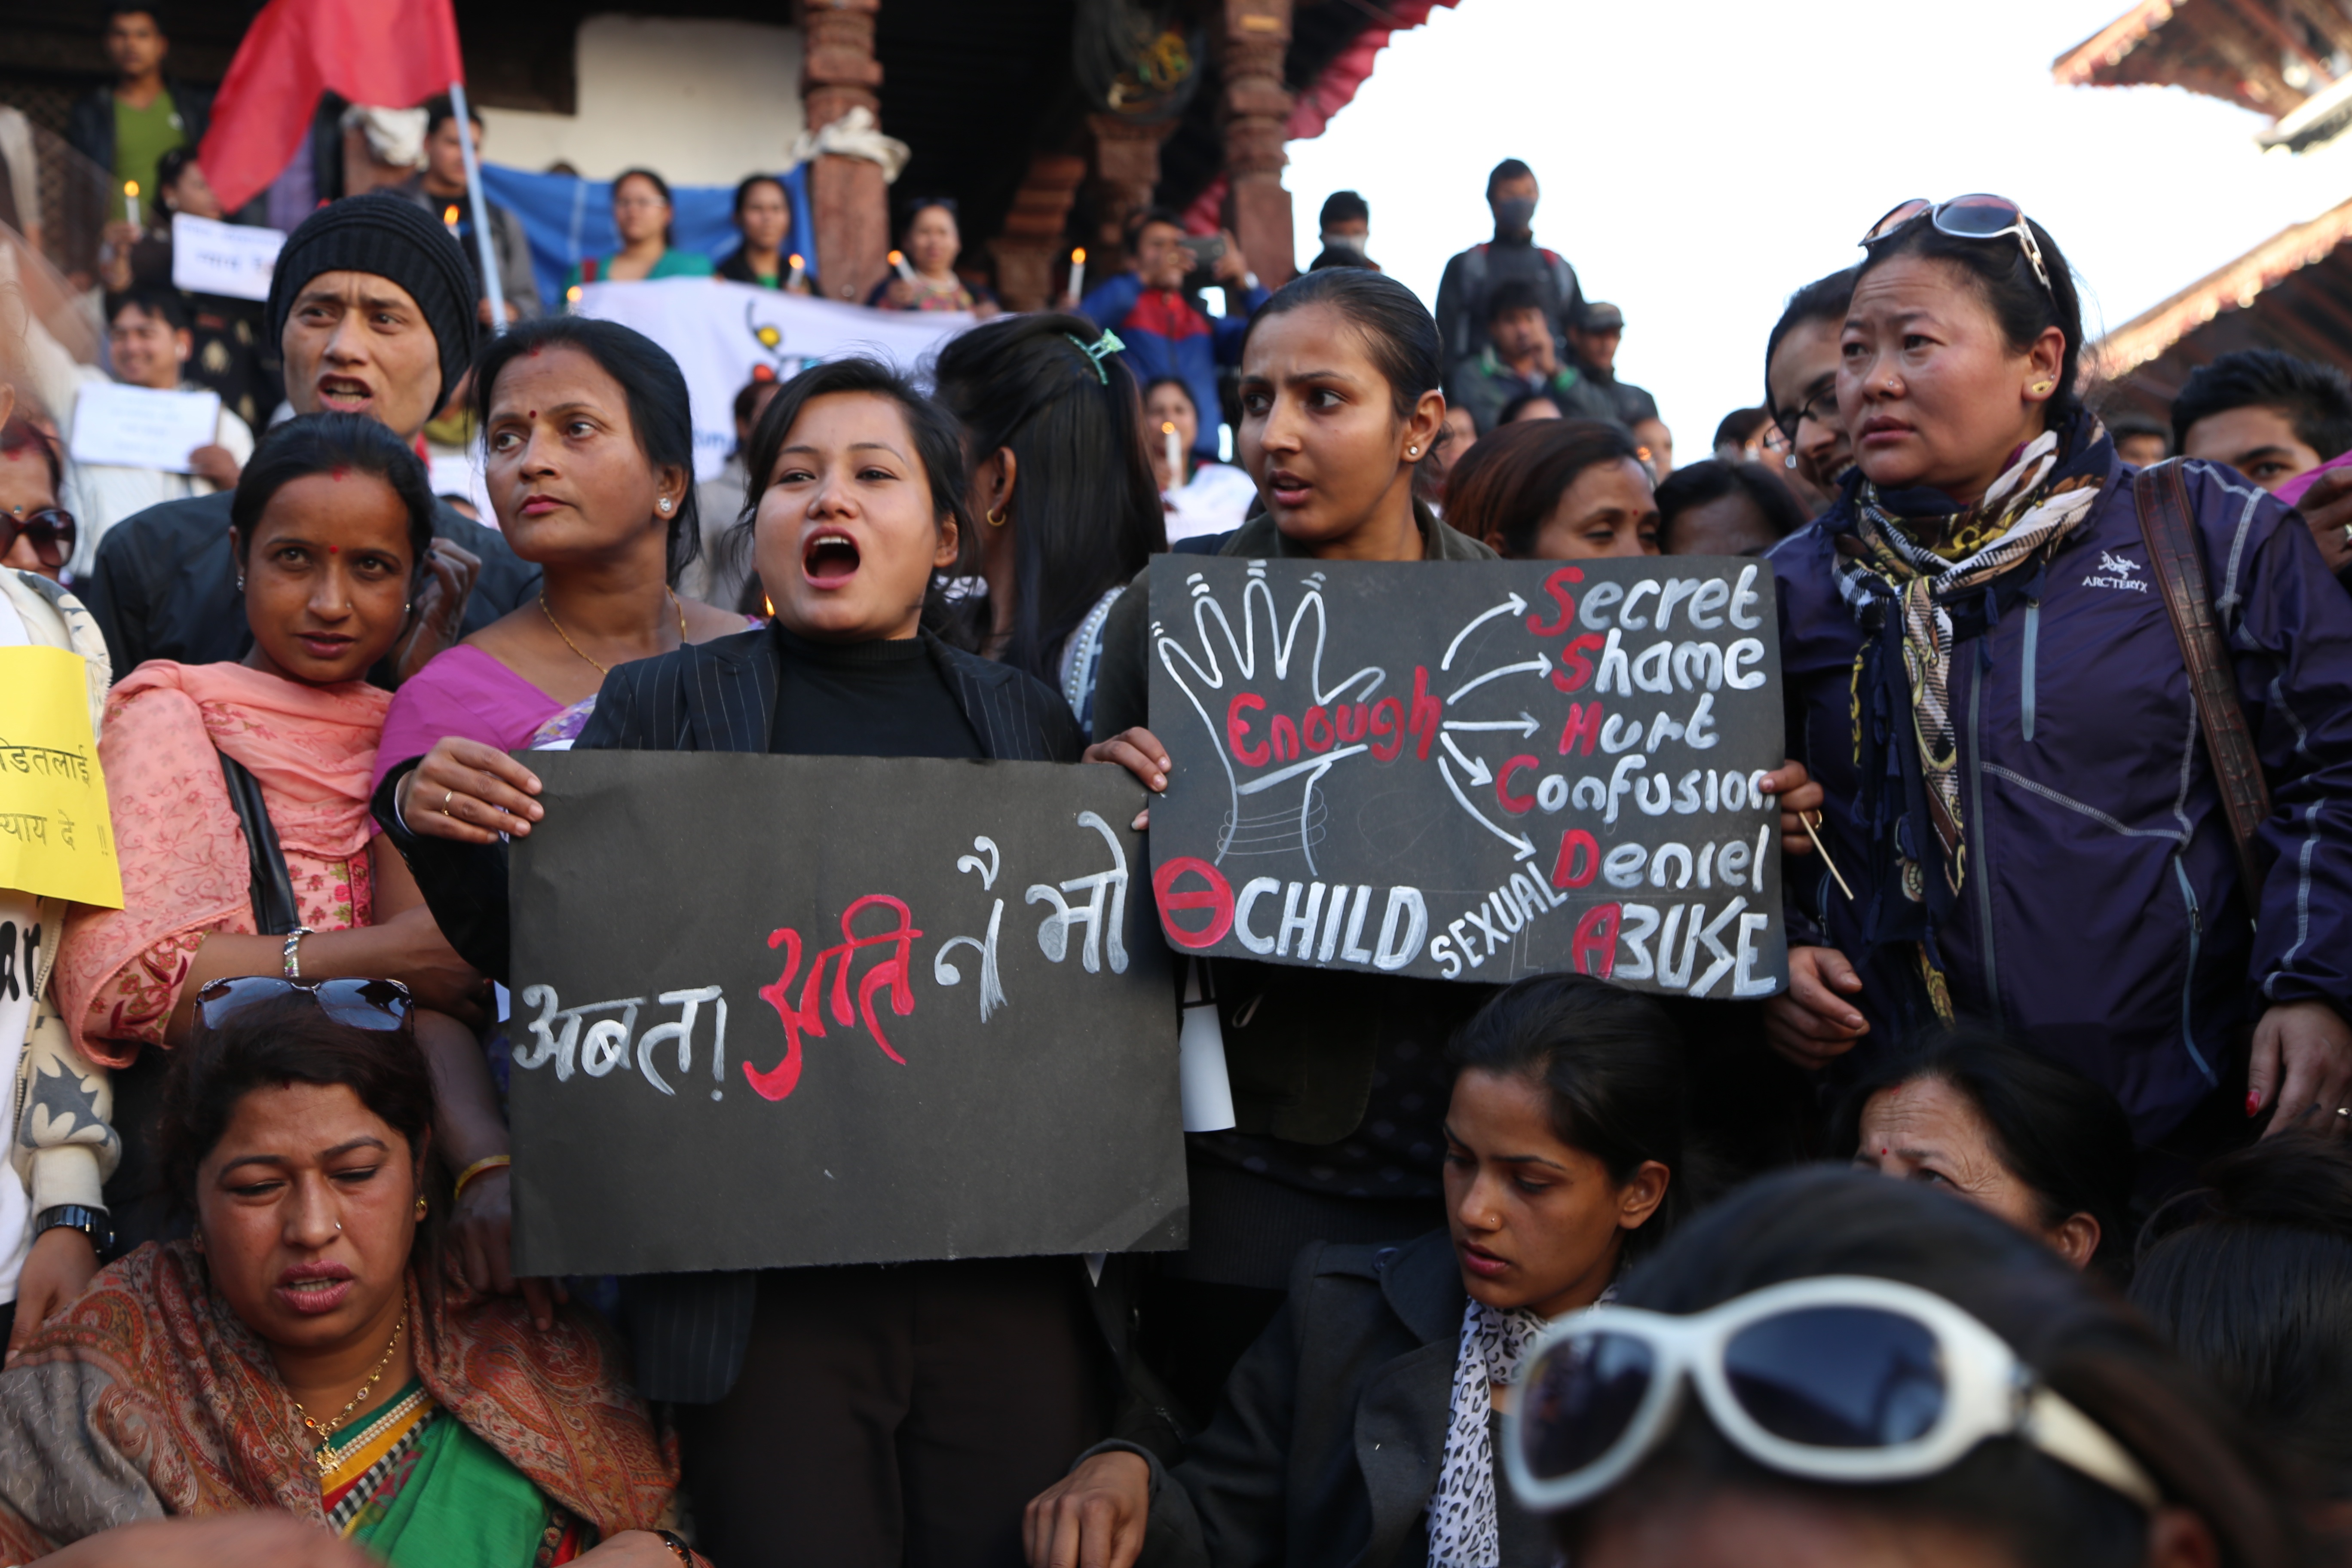 डितलाई
याय दे !!
अबता! अति नै भो
Enough
Secret
Shame
Hurt
Confusion
Deniel
CHILD SEXUAL ABUSE
ARC'TERYX